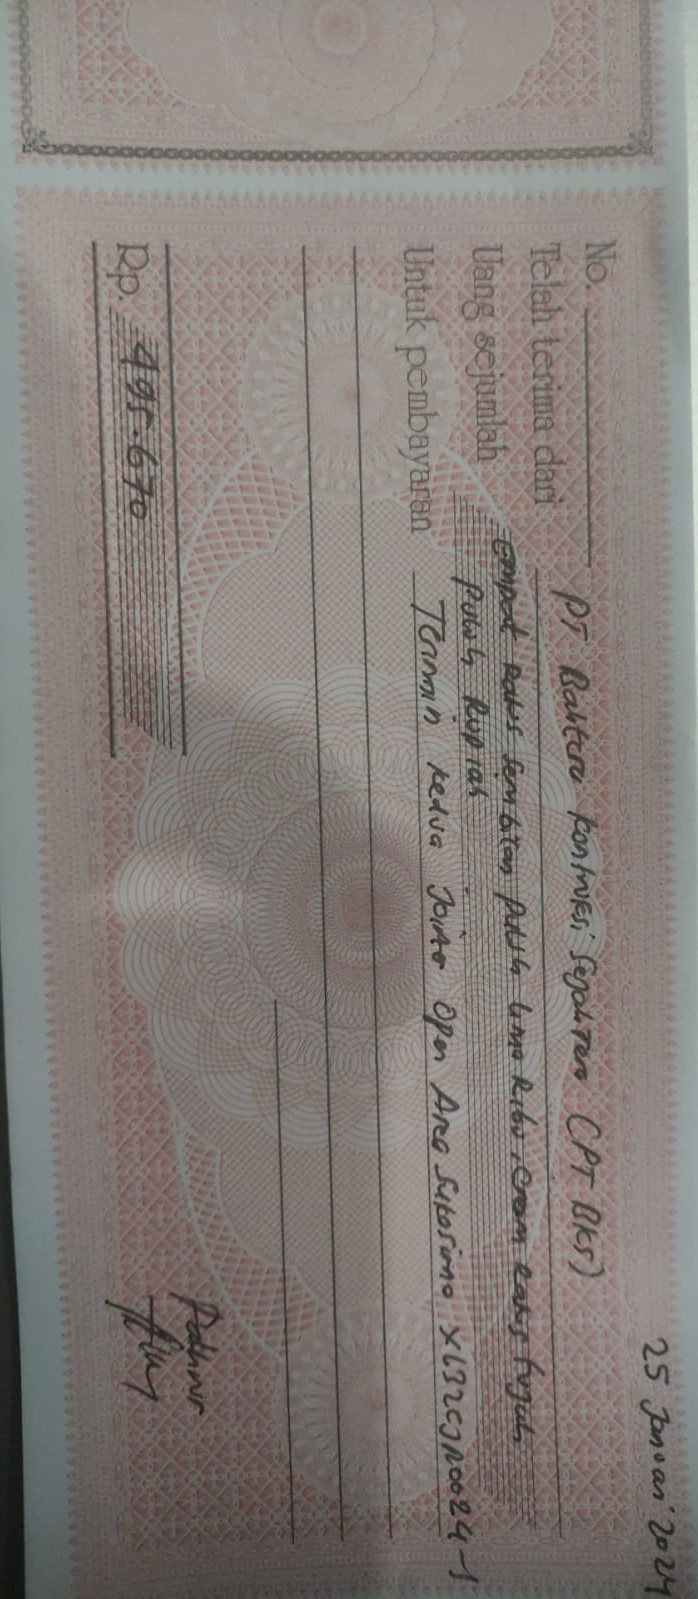 25 Januari 2024
No.
Telah terima dari PT Bahtera Kontruksi Sejahtera (PT BKS)
Uang sejumlah Empat Ratus Sembilan Puluh Lima Ribu, Enam Ratus Tujuh
Puluh Rupiah
Untuk pembayaran Termin kedua Open Area Sukosimo
Rp. 495.670